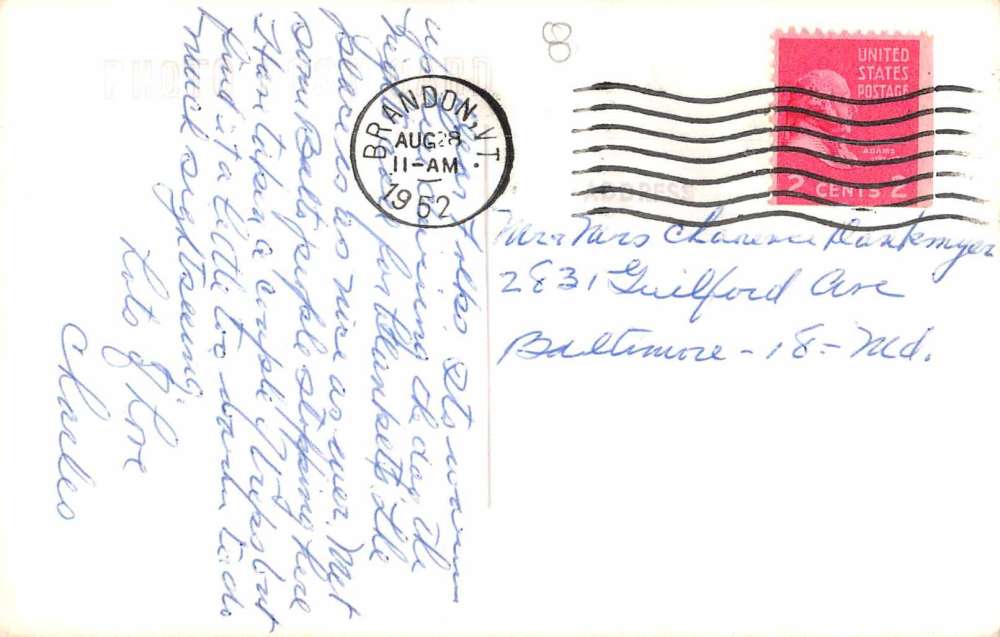 PHOTO POST CARD
ADDRESS
8
BRANDON, VT.
AUG 28
11-AM
1952
UNITED
STATES
POSTAGE
ADAMS
2 CENTS 2
Mr & Mrs Clarence
2831 Guilford Ave
Baltimore - 18 - Md.
Dear Folks. It's warm
up here during the day. The
for blankets. The
place is as nice as ever. Met
some Balto people stopping here
Have taken a couple of trips but
find it a little too warm to do
much sightseeing.
Lots of love
Charles